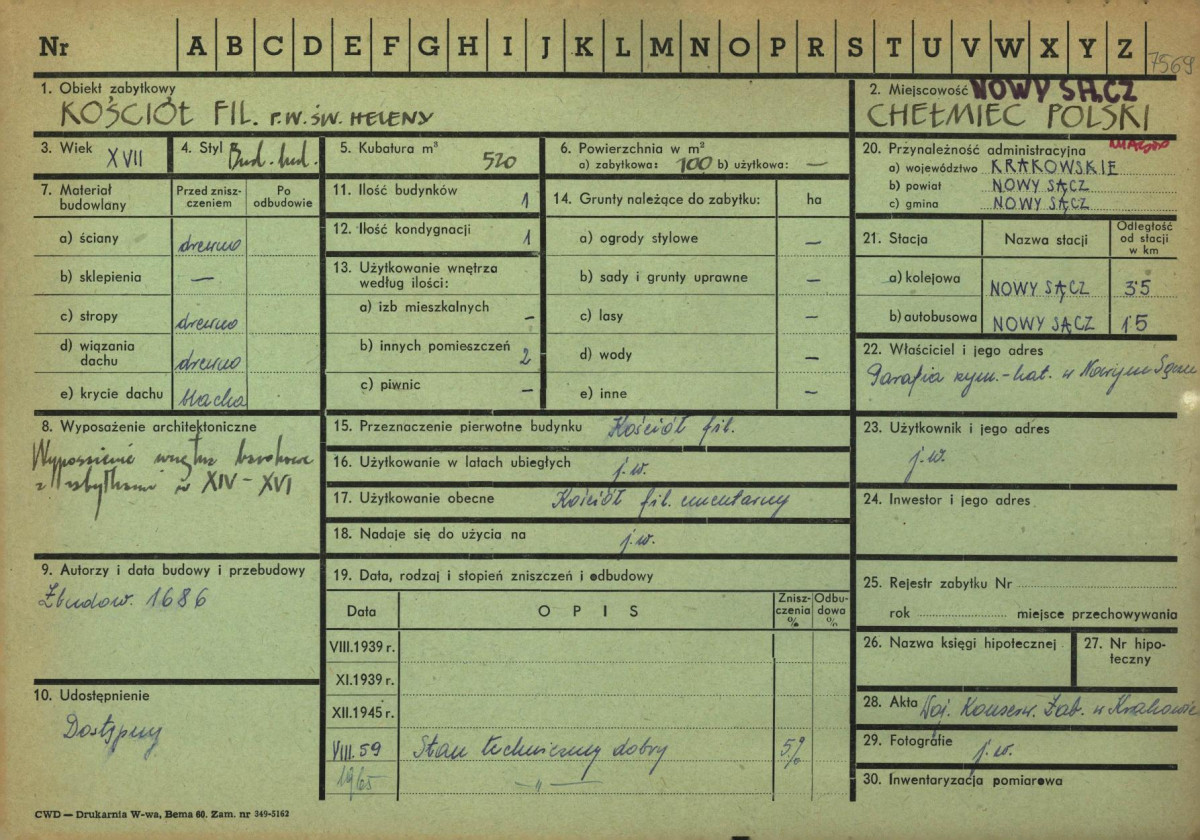 Nr A B C D E F G H I J K L M N O P R S T U V W X Y Z 7569
1. Obiekt zabytkowy
KOŚCIÓŁ FIL. P.W. ŚW. HELENY
2. Miejscowość NOWY SĄCZ
CHEŁMIEC POLSKI
3. Wiek XVII
4. Styl Bud. lud.
5. Kubatura m³ 520
6. Powierzchnia w m²
a) zabytkowa: 100 b) użytkowa: —
20. Przynależność administracyjna miasto
a) województwo KRAKOWSKIE
b) powiat NOWY SĄCZ
c) gmina NOWY SĄCZ
7. Materiał budowlany
Przed znisz-
czeniem
Po
odbudowie
a) ściany drewno
b) sklepienia —
c) stropy drewno
d) wiązania
dachu drewno
e) krycie dachu blacha
11. Ilość budynków 1
12. Ilość kondygnacji 1
13. Użytkowanie wnętrza
według ilości:
a) izb mieszkalnych –
b) innych pomieszczeń 2
c) piwnic –
14. Grunty należące do zabytku: ha
a) ogrody stylowe —
b) sady i grunty uprawne —
c) lasy —
d) wody —
e) inne —
21. Stacja Nazwa stacji Odległość
od stacji
w km
a) kolejowa NOWY SĄCZ 3'5
b) autobusowa NOWY SĄCZ 1'5
22. Właściciel i jego adres
Parafia rzym.-kat. w Nowym Sączu
8. Wyposażenie architektoniczne
Wyposażenie wnętrza barokowe
z zabytkami w XIV – XVI
15. Przeznaczenie pierwotne budynku Kościół fil.
16. Użytkowanie w latach ubiegłych j.w.
17. Użytkowanie obecne Kościół fil. cmentarny
18. Nadaje się do użycia na j.w.
23. Użytkownik i jego adres
j.w.
24. Inwestor i jego adres
9. Autorzy i data budowy i przebudowy
Zbudow. 1686
10. Udostępnienie
Dostępny
19. Data, rodzaj i stopień zniszczeń i odbudowy
Data OPIS Znisz-
czenia
%
Odbu-
dowa
%
VIII.1939 r.
XI.1939 r.
XII.1945 r.
VIII.59 Stan techniczny dobry 5%
1965 — „ —
25. Rejestr zabytku Nr
rok miejsce przechowywania
26. Nazwa księgi hipotecznej
27. Nr hipo-
teczny
28. Akta Woj. Konserw. Zab. w Krakowie
29. Fotografie j.w.
30. Inwentaryzacja pomiarowa
CWD — Drukarnia W-wa, Bema 60. Zam. nr 349-5162